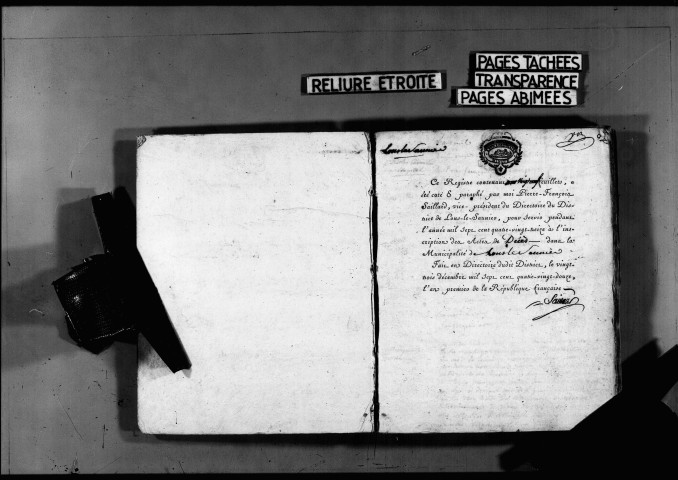 PAGES TACHEES
RELIURE ETROITE
TRANSPARENCE
PAGES ABIMEES
Lons le Saunier
Ce Registre contenant feuillets, a
été coté & paraphé par moi Pierre-François
Saillard, vice-président du Directoire du Dis-
trict de Lons-le-Saunier, pour servir pendant
l'année mil sept cent quatre-vingt-treize à l'ins-
cription des Actes de Décès dans la
Municipalité de Lons le Saunier
Fait en Directoire dudit District, le vingt-
trois décembre mil sept cent quatre-vingt-douze,
l'an premier de la République française